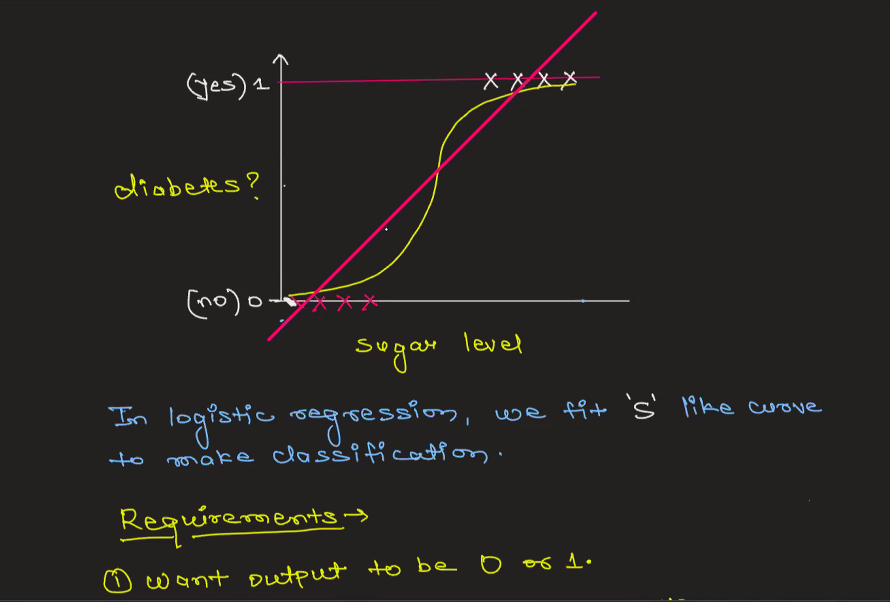 (yes) 1
diabetes?
(no) 0
sugar level
In logistic regression, we fit 'S' like curve
to make classification.
Requirements →
① want output to be 0 or 1.